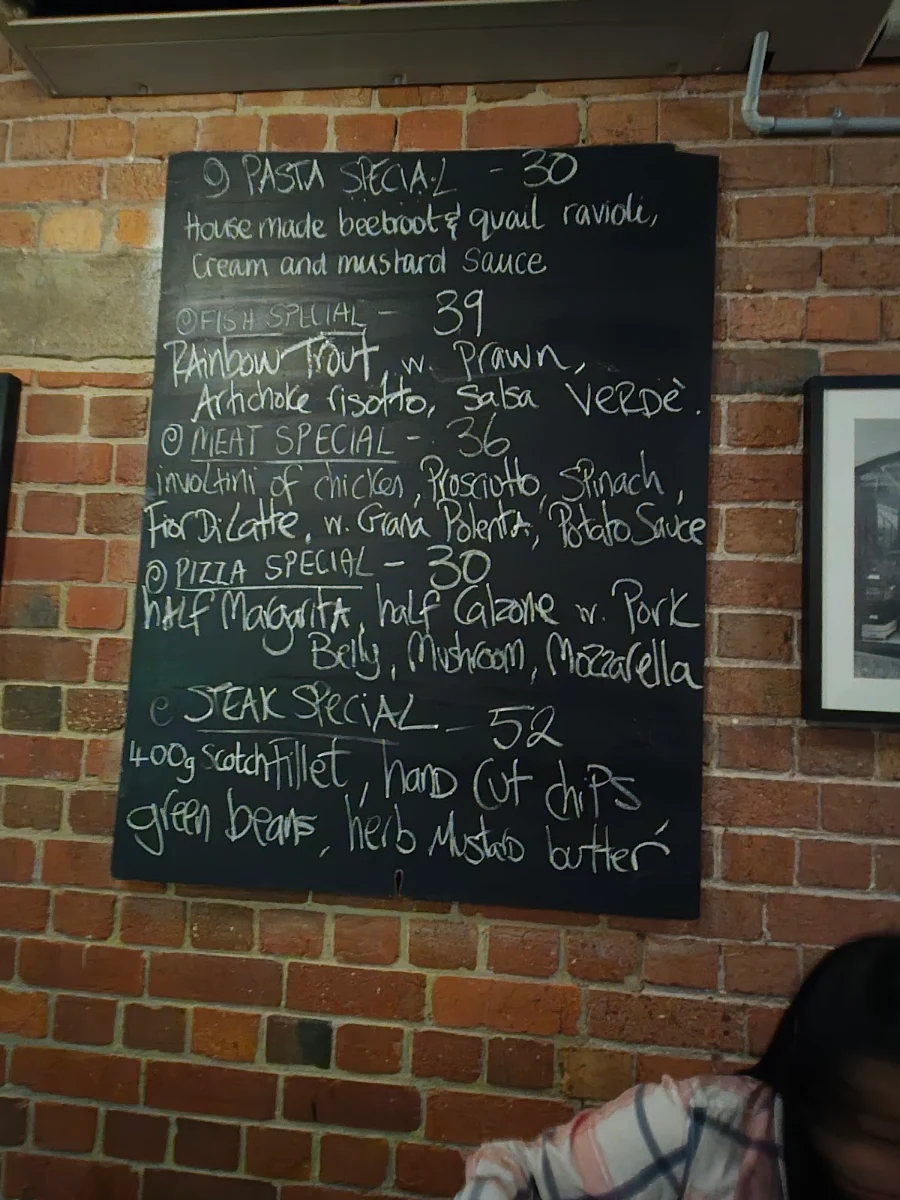 PASTA SPECIAL - 30
House made beetroot & quail ravioli,
Cream and mustard Sauce
FISH SPECIAL - 39
Rainbow Trout, w. Prawn,
Artichoke risotto, Salsa VERDÈ.
MEAT SPECIAL - 36
involtini of chicken, Prosciutto, Spinach,
Fior Di Latte, w. Grana Polenta, Potato Sauce
PIZZA SPECIAL - 30
half Margarita, half Calzone w. Pork
Belly, Mushroom, Mozzarella
STEAK SPECIAL - 52
400g Scotch fillet, hand cut chips
green beans, herb Mustard butter